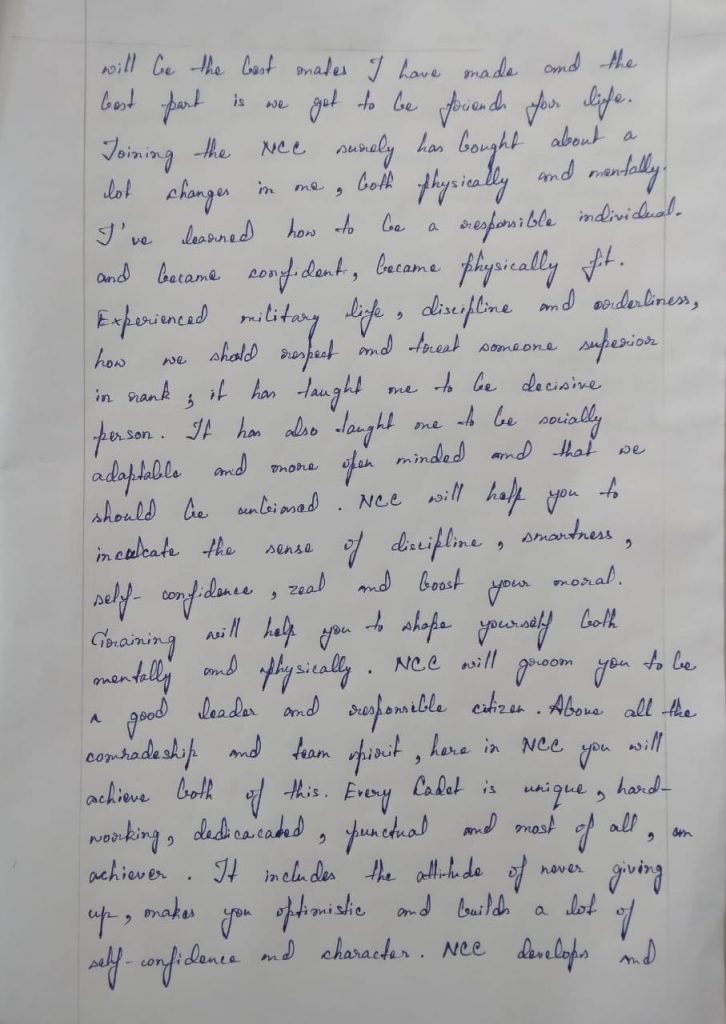 will be the best mates I have made and the
best part is we get to be friends for life.
Joining the NCC surely has bought about a
lot changes in me, both physically and mentally.
I've learned how to be a responsible individual.
and became confident, became physically fit.
Experienced military life, discipline and orderliness,
how we should respect and treat someone superior
in rank; it has taught me to be decisive
person. It has also taught me to be socially
adaptable and more open minded and that we
should be unbiased. NCC will help you to
inculcate the sense of discipline, smartness,
self-confidence, zeal and boost your moral.
Training will help you to shape yourself both
mentally and physically. NCC will groom you to be
a good leader and responsible citizen. Above all the
comradeship and team spirit, here in NCC you will
achieve both of this. Every Cadet is unique, hard-
working, dedicacated, punctual and most of all, an
achiever. It includes the attitude of never giving
up, makes you optimistic and builds a lot of
self-confidence and character. NCC develops and